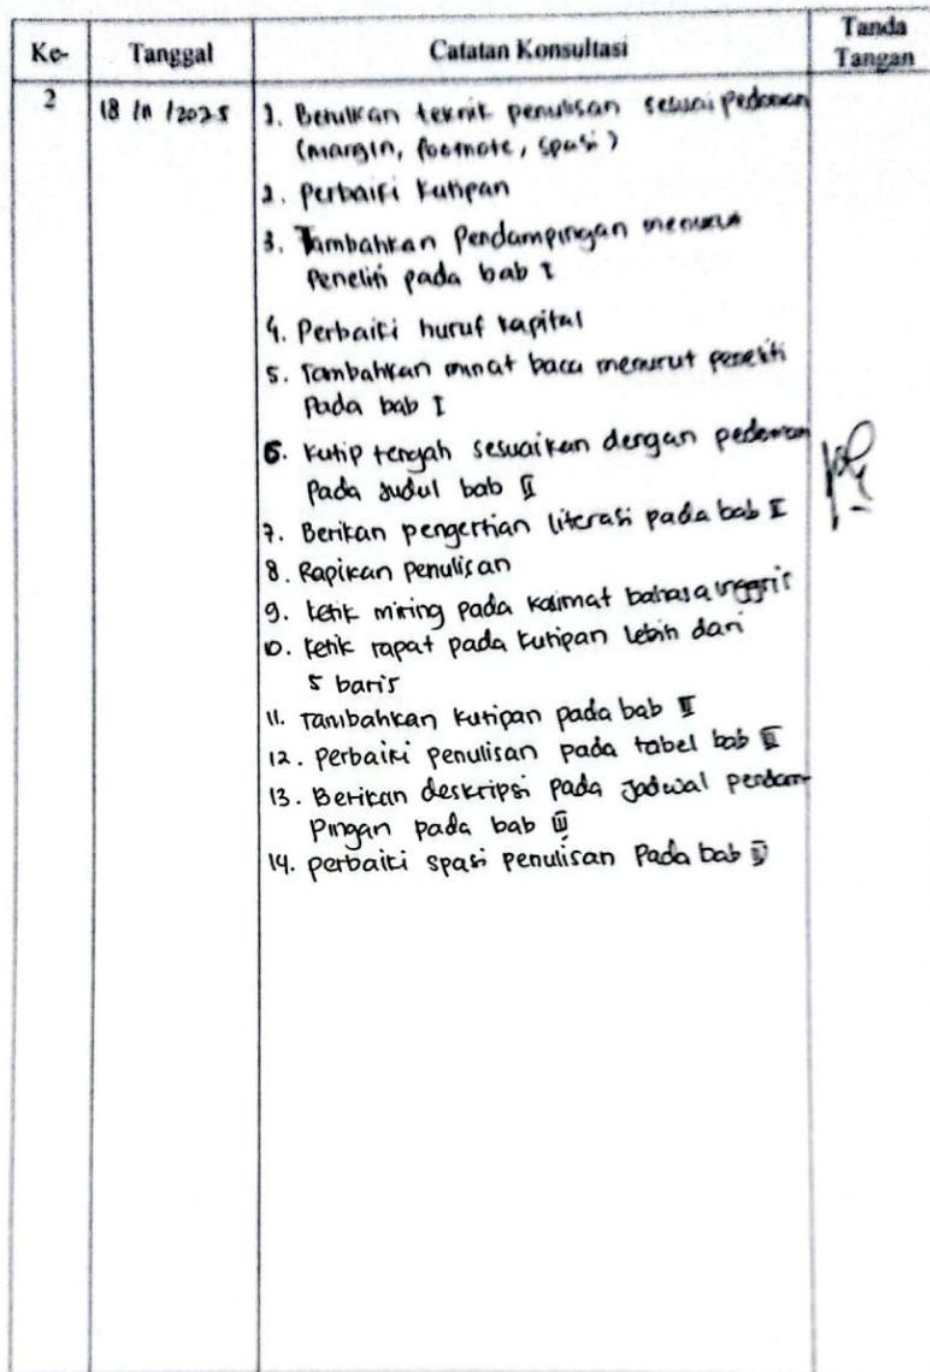 Ke- Tanggal Catatan Konsultasi Tanda Tangan
2 18/11/2025 1. Betulkan teknik penulisan sesuai pedoman
(margin, footnote, spasi)
2. Perbaiki kutipan
3. Tambahkan Pendampingan menurut
Peneliti pada bab I
4. Perbaiki huruf kapital
5. Tambahkan minat baca menurut peneliti
Pada bab I
6. Kutip tengah sesuaikan dengan pedoman
Pada judul bab II
7. Berikan pengertian literasi pada bab I
8. Rapikan penulisan
9. Ketik miring pada kalimat bahasa inggris
10. Ketik rapat pada kutipan lebih dari
5 baris
11. Tambahkan kutipan pada bab II
12. Perbaiki penulisan pada tabel bab III
13. Berikan deskripsi pada Jadwal pendam-
Pingan pada bab III
14. Perbaiki spasi penulisan Pada bab IV